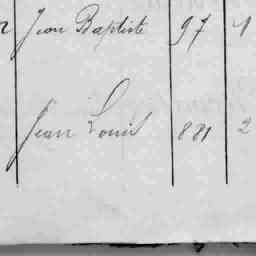 Jean Baptiste 97 1
Jean Louis 881 2